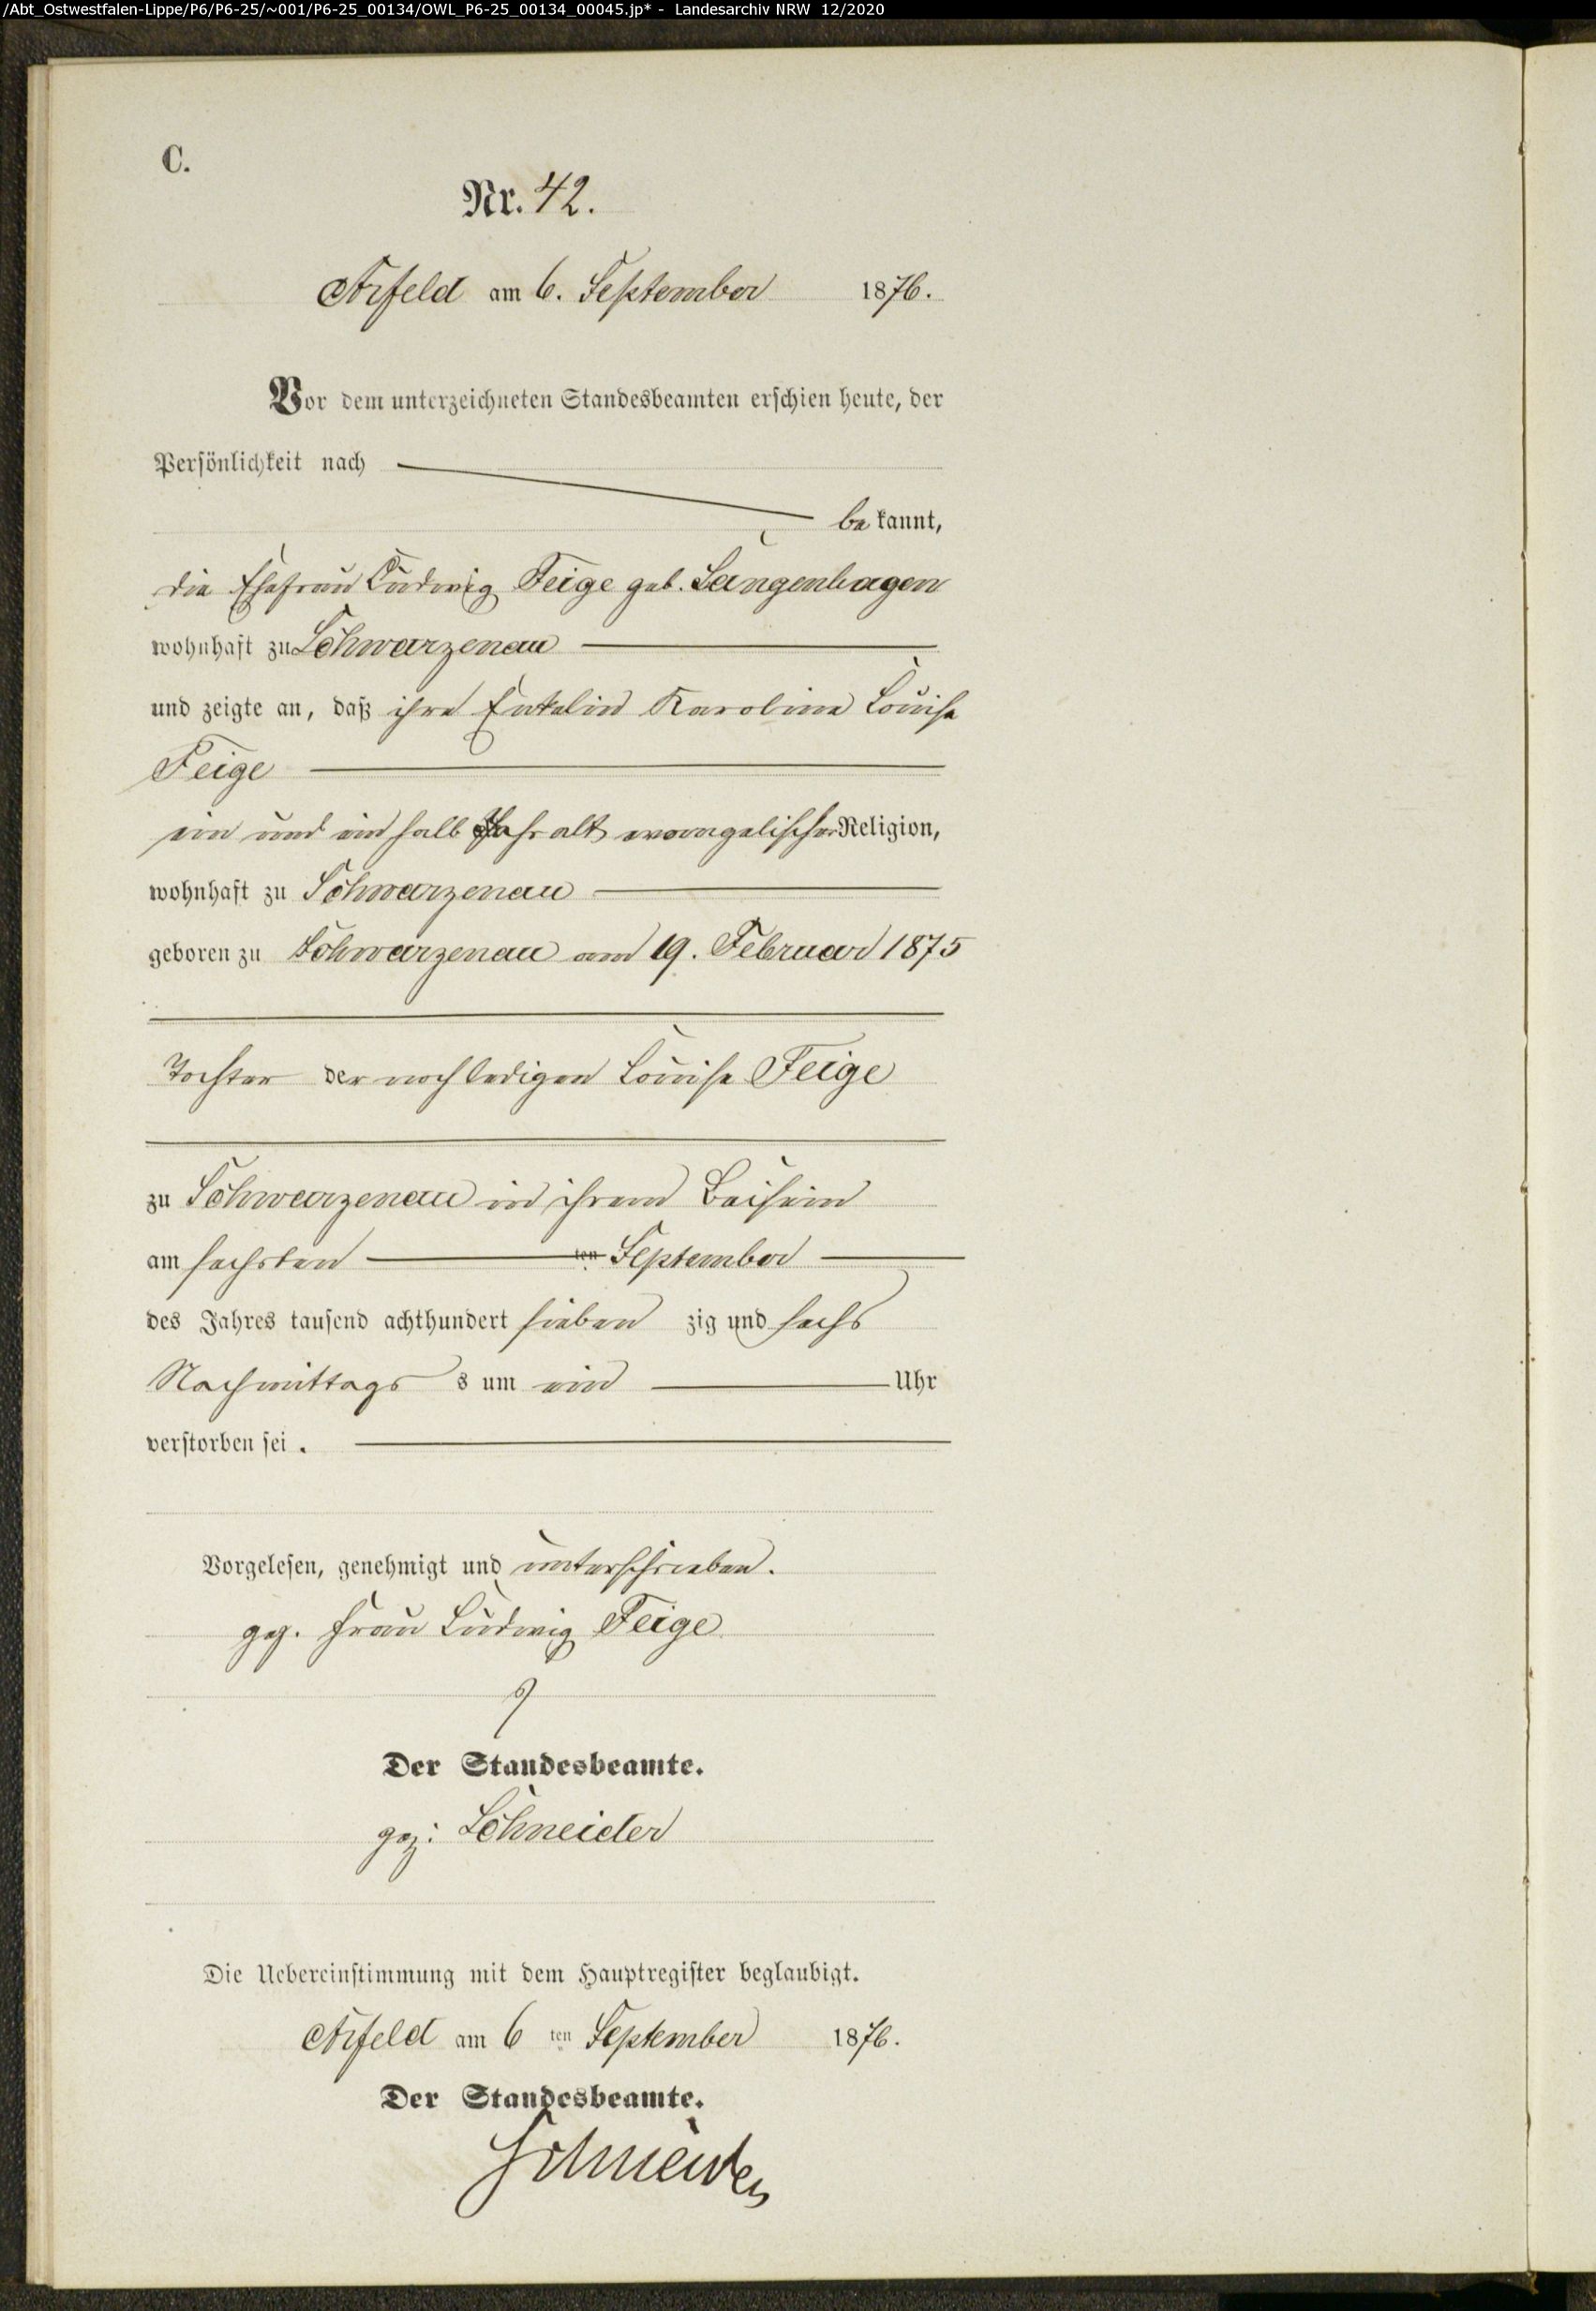 /Abt_Ostwestfalen-Lippe/P6/P6-25/~001/P6-25_00134/OWL_P6-25_00134_00045.jp* - Landesarchiv NRW 12/2020
C.
Nr. 42.
Arfeld am 6. September 1876.
Vor dem unterzeichneten Standesbeamten erschien heute, der
Persönlichkeit nach
be kannt,
die Ehefrau Ludwig Feige geb. Langenhagen
wohnhaft zu Schwarzenau
und zeigte an, daß ihre Enkelin Karoline Louise
Feige
ein und ein halb Jahr alt evangelischer Religion,
wohnhaft zu Schwarzenau
geboren zu Schwarzenau am 19. Februar 1875
Tochter der noch ledigen Louise Feige
zu Schwarzenau in ihrem Beisein
am sechsten ten September
des Jahres tausend achthundert sieben zig und sechs
Nachmittags s um ein Uhr
verstorben sei .
Vorgelesen, genehmigt und unterschrieben.
gez. Frau Ludwig Feige
Der Standesbeamte.
gez: Schneider
Die Uebereinstimmung mit dem Hauptregister beglaubigt.
Arfeld am 6 ten September 1876.
Der Standesbeamte.
Schneider